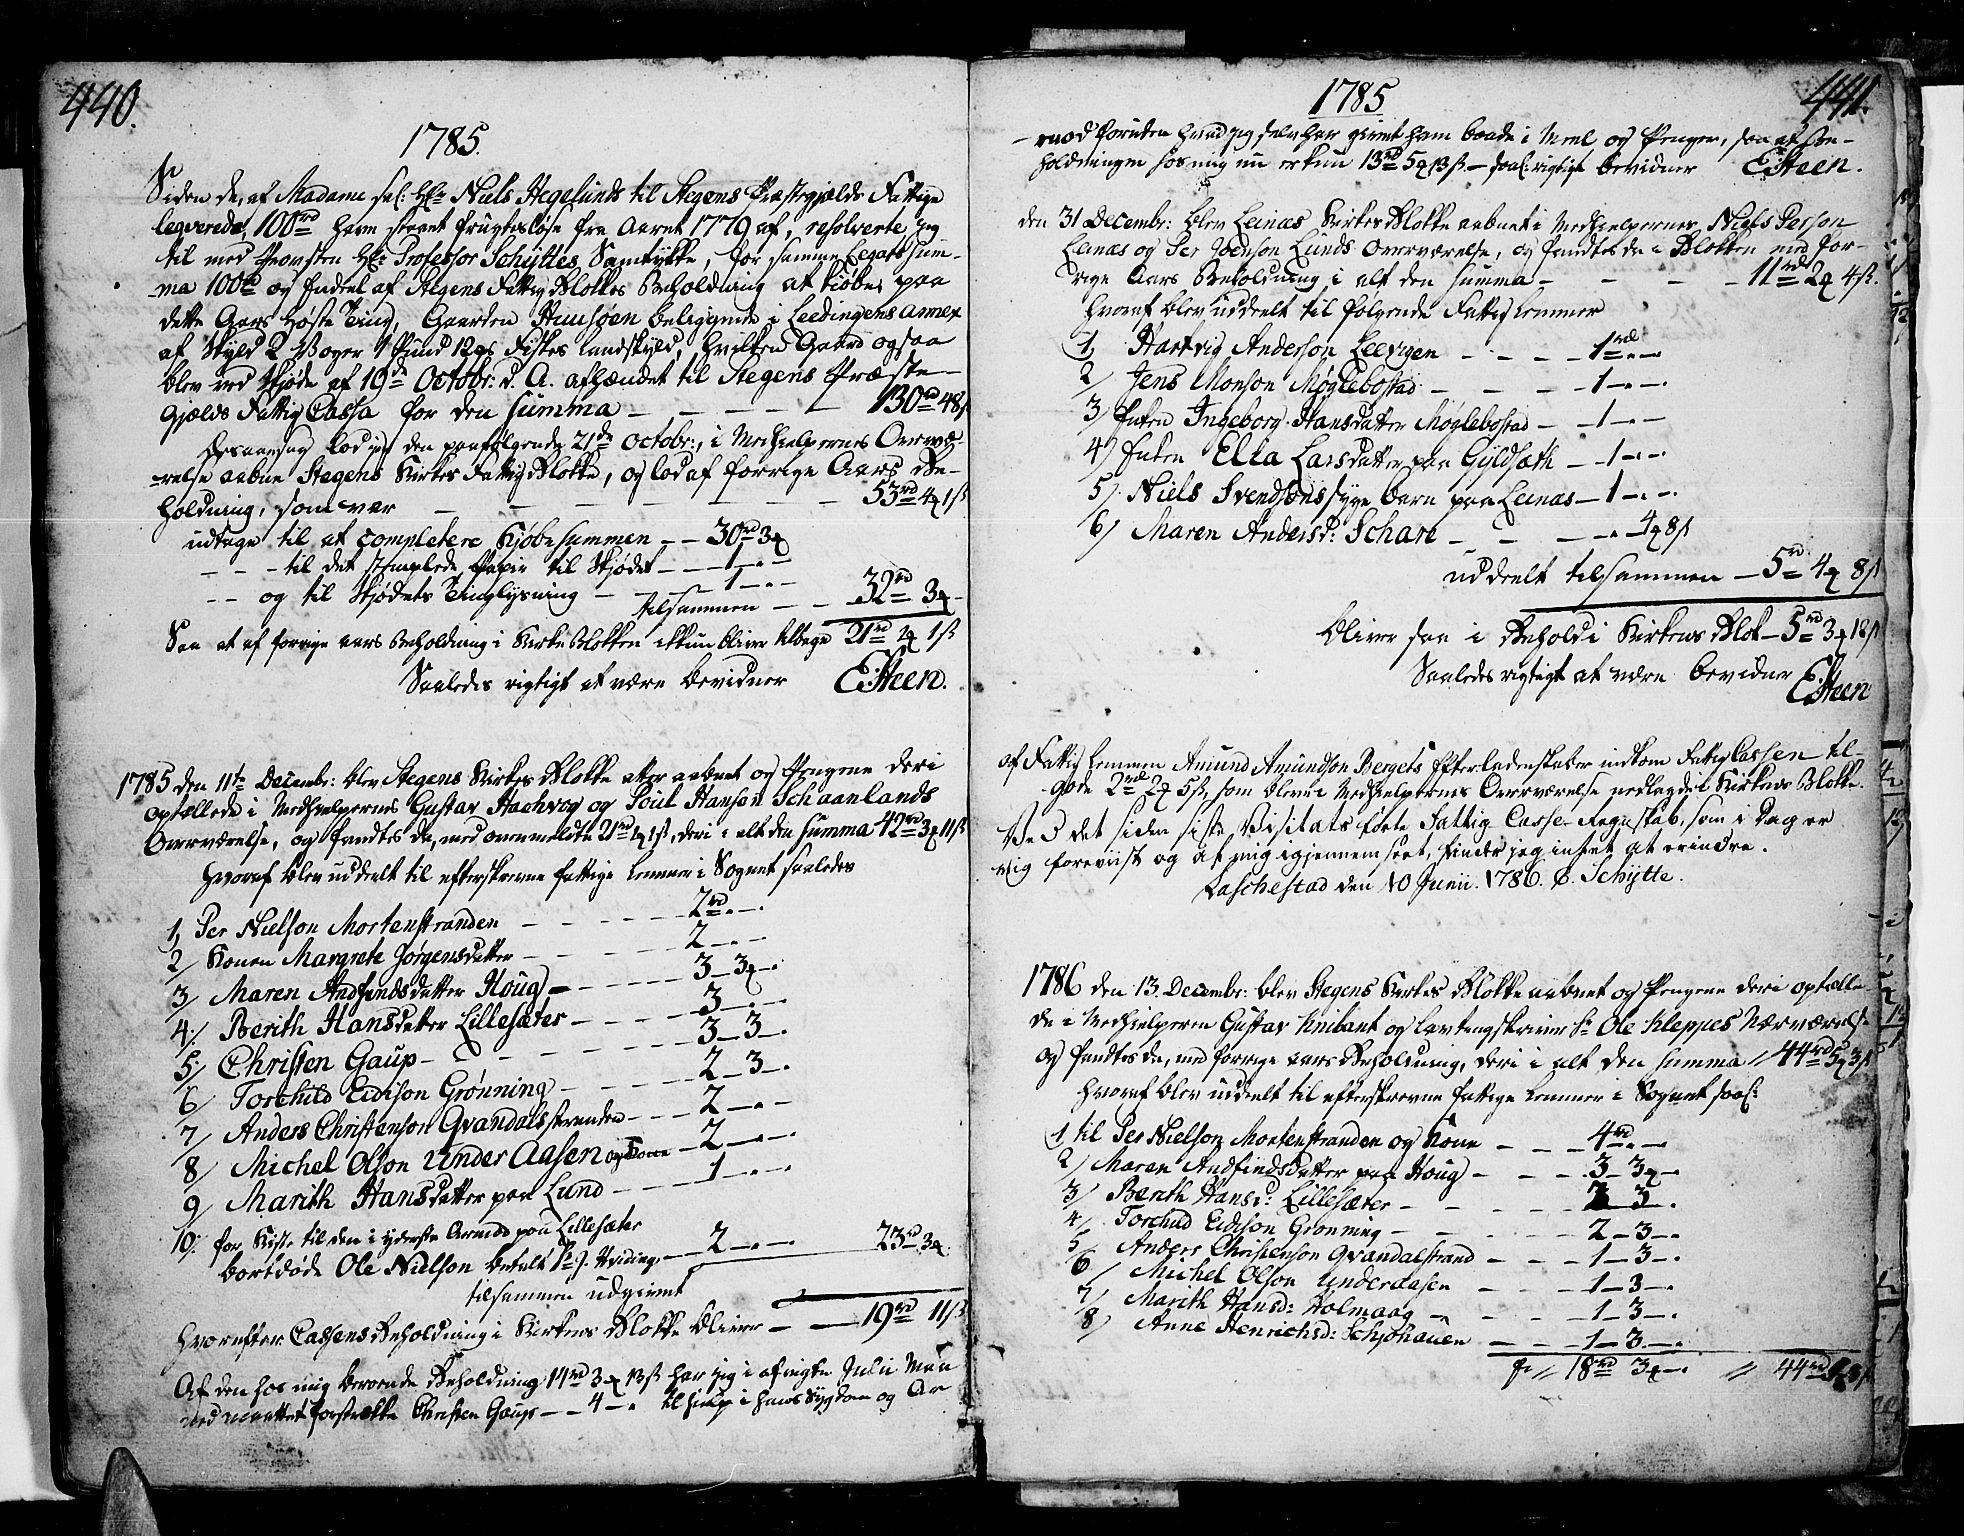 440.
1785.
Siden de, af Madame sal: Hr: Niels Hegelunds til Stegens Præstegjælds Fattige
legerede, 100rd have staaet frugtesløse fra Aaret 1779 af, resolverte jeg
til med Provsten Hr: Professor Schyttes Samtykke, for samme Legats Sum-
-ma 100rd og Endeel af Stegens Fattig Blokkes Beholdning at kiøbe, paa
dette Aars Høste Ting, Gaarden Huusøen beliggende i Leedingens Annex
af Skyld 2 Voger 1 Pund 12 Fiskes Landskyld, hvilken Gaard ogsaa
blev ved Skjøde af 19de Octobr: d. A. afhændet til Stegens Præste-
gjælds Fattig Cassa for den Summa — — — — 130rd 48s
Desaarsag lod jeg den paafølgende 21de Octobr:, i Medhielpernes Overvæ-
-relse aabne Stegens Kirkes Fattig Blokke, og lod af forrige Aars Be-
holdning, som var — — — — — — 53rd 4 1s
udtage til at completere Kjøbesummen — — 30rd 3
— — — til det stemplede Papir til Skjødet — — 1 — . —
— — og til Skjødets Tinglysning — — — 1 — . —
tilsammen — — 32rd 3
Saa at af forrige aars Beholdning i Kirke Blokken ikkun bliver tilbage 21rd 1 1s
Saaledes rigtigt at være bevidner ESteen.
1785 den 11te Decembr: blev Stegens Kirkes Blokke atter aabnet og Pengene deri
optællede i Medhielpernes Gustav Hachvog og Poul Hanson Schaanlands
Overværelse, og fandtes da, med ovenmeldte 21rd 1 1s, deri i alt den Summa 42rd 3 11s
hvoraf blev uddeelt til efterskrevne fattige Lemmer i Sognet saaledes
1, Per Nielson Mortenstranden — — — — 2rd . —
2/ Konen Margrete Jørgensdatter — — — — 2 — . —
3/ Maren Andfindsdatter Houg — — — — 3 — 3 .
4/. Berith Hansdatter Lillesæter — — — — 3 — . —
5/. Christen Gaup — — — — 3 — 3 — .
6/ Torchild Eidison Grønning — — — — 2 — 3 — .
7/ Anders Christenson Qvandalsstranden — — — 2 — . —
8/ Michel Olson Under Aasen og Kone — 2 — . —
9/ Marith Hansdatter paa Lund — — — 1 — . —
10: for Kiste til den i yderste Armod paa Lillesæter
bortdøde Ole Nielson betalt Sr J. Hvidings — 2 — . — 23rd 3
tilsammen udgivet
hvorefter Cassens Beholdning i Kirkens Blokke bliver — — 19rd 11s
Af den hos mig værende Beholdning 14rd 3 13s har jeg i afvigte Julii Maa
ned maattet forstrække Christen Gaup — — 4 — . til hielp i hans Sygdom og Ar
441.
1785
- mod foruden hvad jeg selv har givet ham baade i Meel og Penger, saa at Be-
holdningen hos mig nu er kun 13rd 5 13s — saal: rigtigt bevidner ESteen.
den 31 Decembr: blev Leinæs Kirkes Blokke aabnet i Medhielpernes Niels Person
Leinæs og Per Joenson Lunds Overværelse, og fandtes da i Blokken med for-
rige Aars Beholdning i alt den Summa — — — 11rd 2 4s.
Hvoraf blev uddeelt til følgende Fattig Lemmer
1, Hartvig Anderson Leevigen — — — 1rd . —
2/ Jens Monson Møglebostad — — — 1 — . —
3/ Enken Ingeborg Hansdatter Møglebostad — — 1 — . —
4) Enken Ella Larsdatter paa Gyldsæth — — 1 — . —
5/. Niels Svendsons syge barn paa Leinæs — 1 — . —
6/ Maren Andersd: Schare — — — . — 4 8s
uddeelt tilsammen — 5rd 4 8s
bliver saa i Behold i Kirkens Blok — 5rd 3 12s
Saaledes rigtigt at være bevidner ESteen
af Fattig Lemmen Amund Amundson Bergets Efterladenskaber indkom Fattig Cassen til-
gode 2rd 2 5s, som bleve i Medhielpernes Overværelse nedlagde i Kirkens Blokke.
Ved det siden siste Visitats førte Fattig Casse-Regnskab, som i Dag er
mig foreviist og af mig igjennemseet, finder jeg intet at erindre.
Laschestad den 10 Junii. 1786. E. Schytte.
1786 den 13. Decembr: blev Stegens Kirkes Blokke aabnet og Pengene deri optælle-
de i Medhielperen Gustav Knibant og Lavtingskriver Sr Ole Kleppes Nærværelse
og fandtes da, med forrige aars Beholdning, deri i alt den Summa // 44rd 5 3s
hvoraf blev uddeelt til efterskrevne fattige Lemmer i Sognet saal:
1, til Per Nielson Mortenstranden og Kone — — 4rd . —
2/ Maren Andfindsdatter paa Houg — — — 3 — 3 .
3/ Berith Hansd: Lillesæter — — — 2 — 3 .
4/ Torchild Eidison Grønning — — — 2 — 3 — .
5/ Anders Christenson Qvandalstrand — — 1 — 3 — .
6/ Michel Olson Underaasen — — — 1 — 3 — .
7/ Marith Hansd: Holmaag — — — 1 — 3 — .
8/ Anne Henrichsd: Schjohauen — — 1 — 3 — .
18rd 3 . // 44rd 5 3s